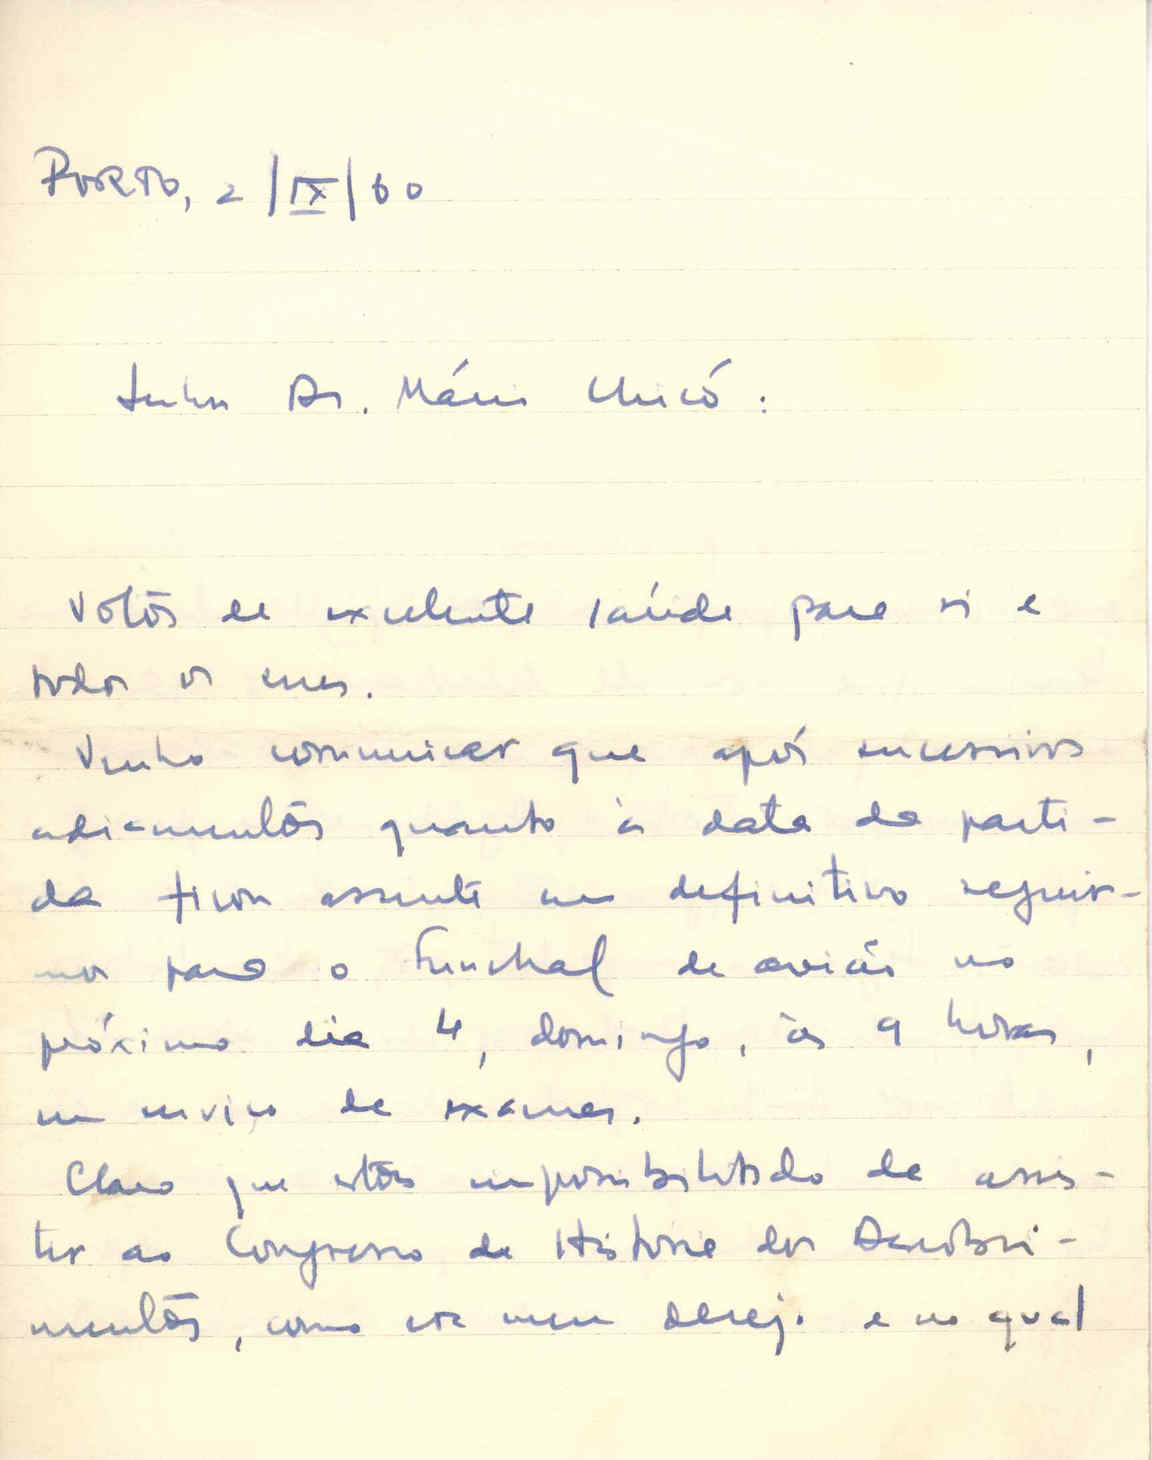 PORTO, 2/IX/60
Senhor Dr. Mário Chicó:
Votos de excelente saúde para si e
todos os seus.
Venho comunicar que após sucessivos
adiamentos quanto à data da parti-
da ficou assente em definitivo seguir-
mos para o Funchal de avião no
próximo dia 4, domingo, às 9 horas,
em serviço de exames.
Claro que estou impossibilitado de assis-
tir ao Congresso da História dos Descobri-
mentos, como era meu desejo e no qual